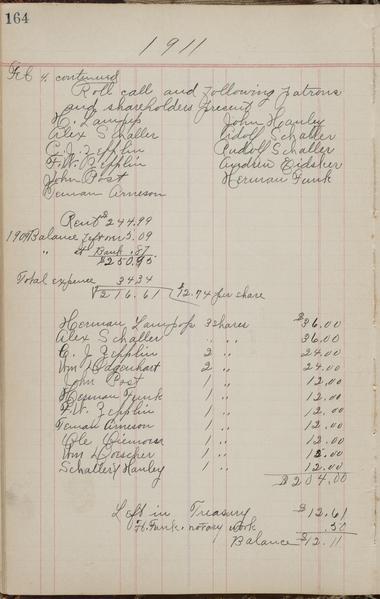 164
1911
Feb 4. continued
Roll call and following patrons
and shareholders present
H. Lampop John Hanley
Alex Schaller Adolf Schaller
C. J. Zepplin Rudolf Schaller
F. W. Zepplin Andrew Eidsker
John Post Herman Funk
Teman Arneson
Rent $244.99
1909 Balance left over 5.09
" at Bank .87
$250.95
Total expense 3434
$216.61 $12.74 per share
Herman Lampop 3 shares $36.00
Alex Schaller " " " 36.00
C. J. Zepplin 2 " 24.00
Wm Odgenhart 2 " 24.00
John Post 1 " 12.00
Herman Funk 1 " 12.00
F. W. Zepplin 1 " 12.00
Teman Arneson 1 " 12.00
Ole 1 " 12.00
Wm Doescher 1 " 12.00
Schaller & Hanley 1 " 12.00
$204.00
Left in Treasury $12.61
H. Funk. notary work .50
Balance $12.11